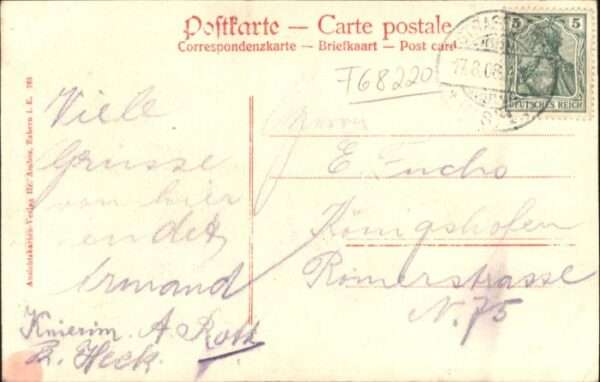 Postkarte — Carte postale
Correspondenzkarte — Briefkaart — Post card
F68220
5 5
DEUTSCHES REICH
17.8.08
Viele
Grüsse
von hier
endet
Armand
Knierim. A. Roth
R. Heck.
Herrn
E. Fuchs
Königshofen
Römerstrasse
N. 75
Ansichtskarten-Verlag
Zabern i. E.